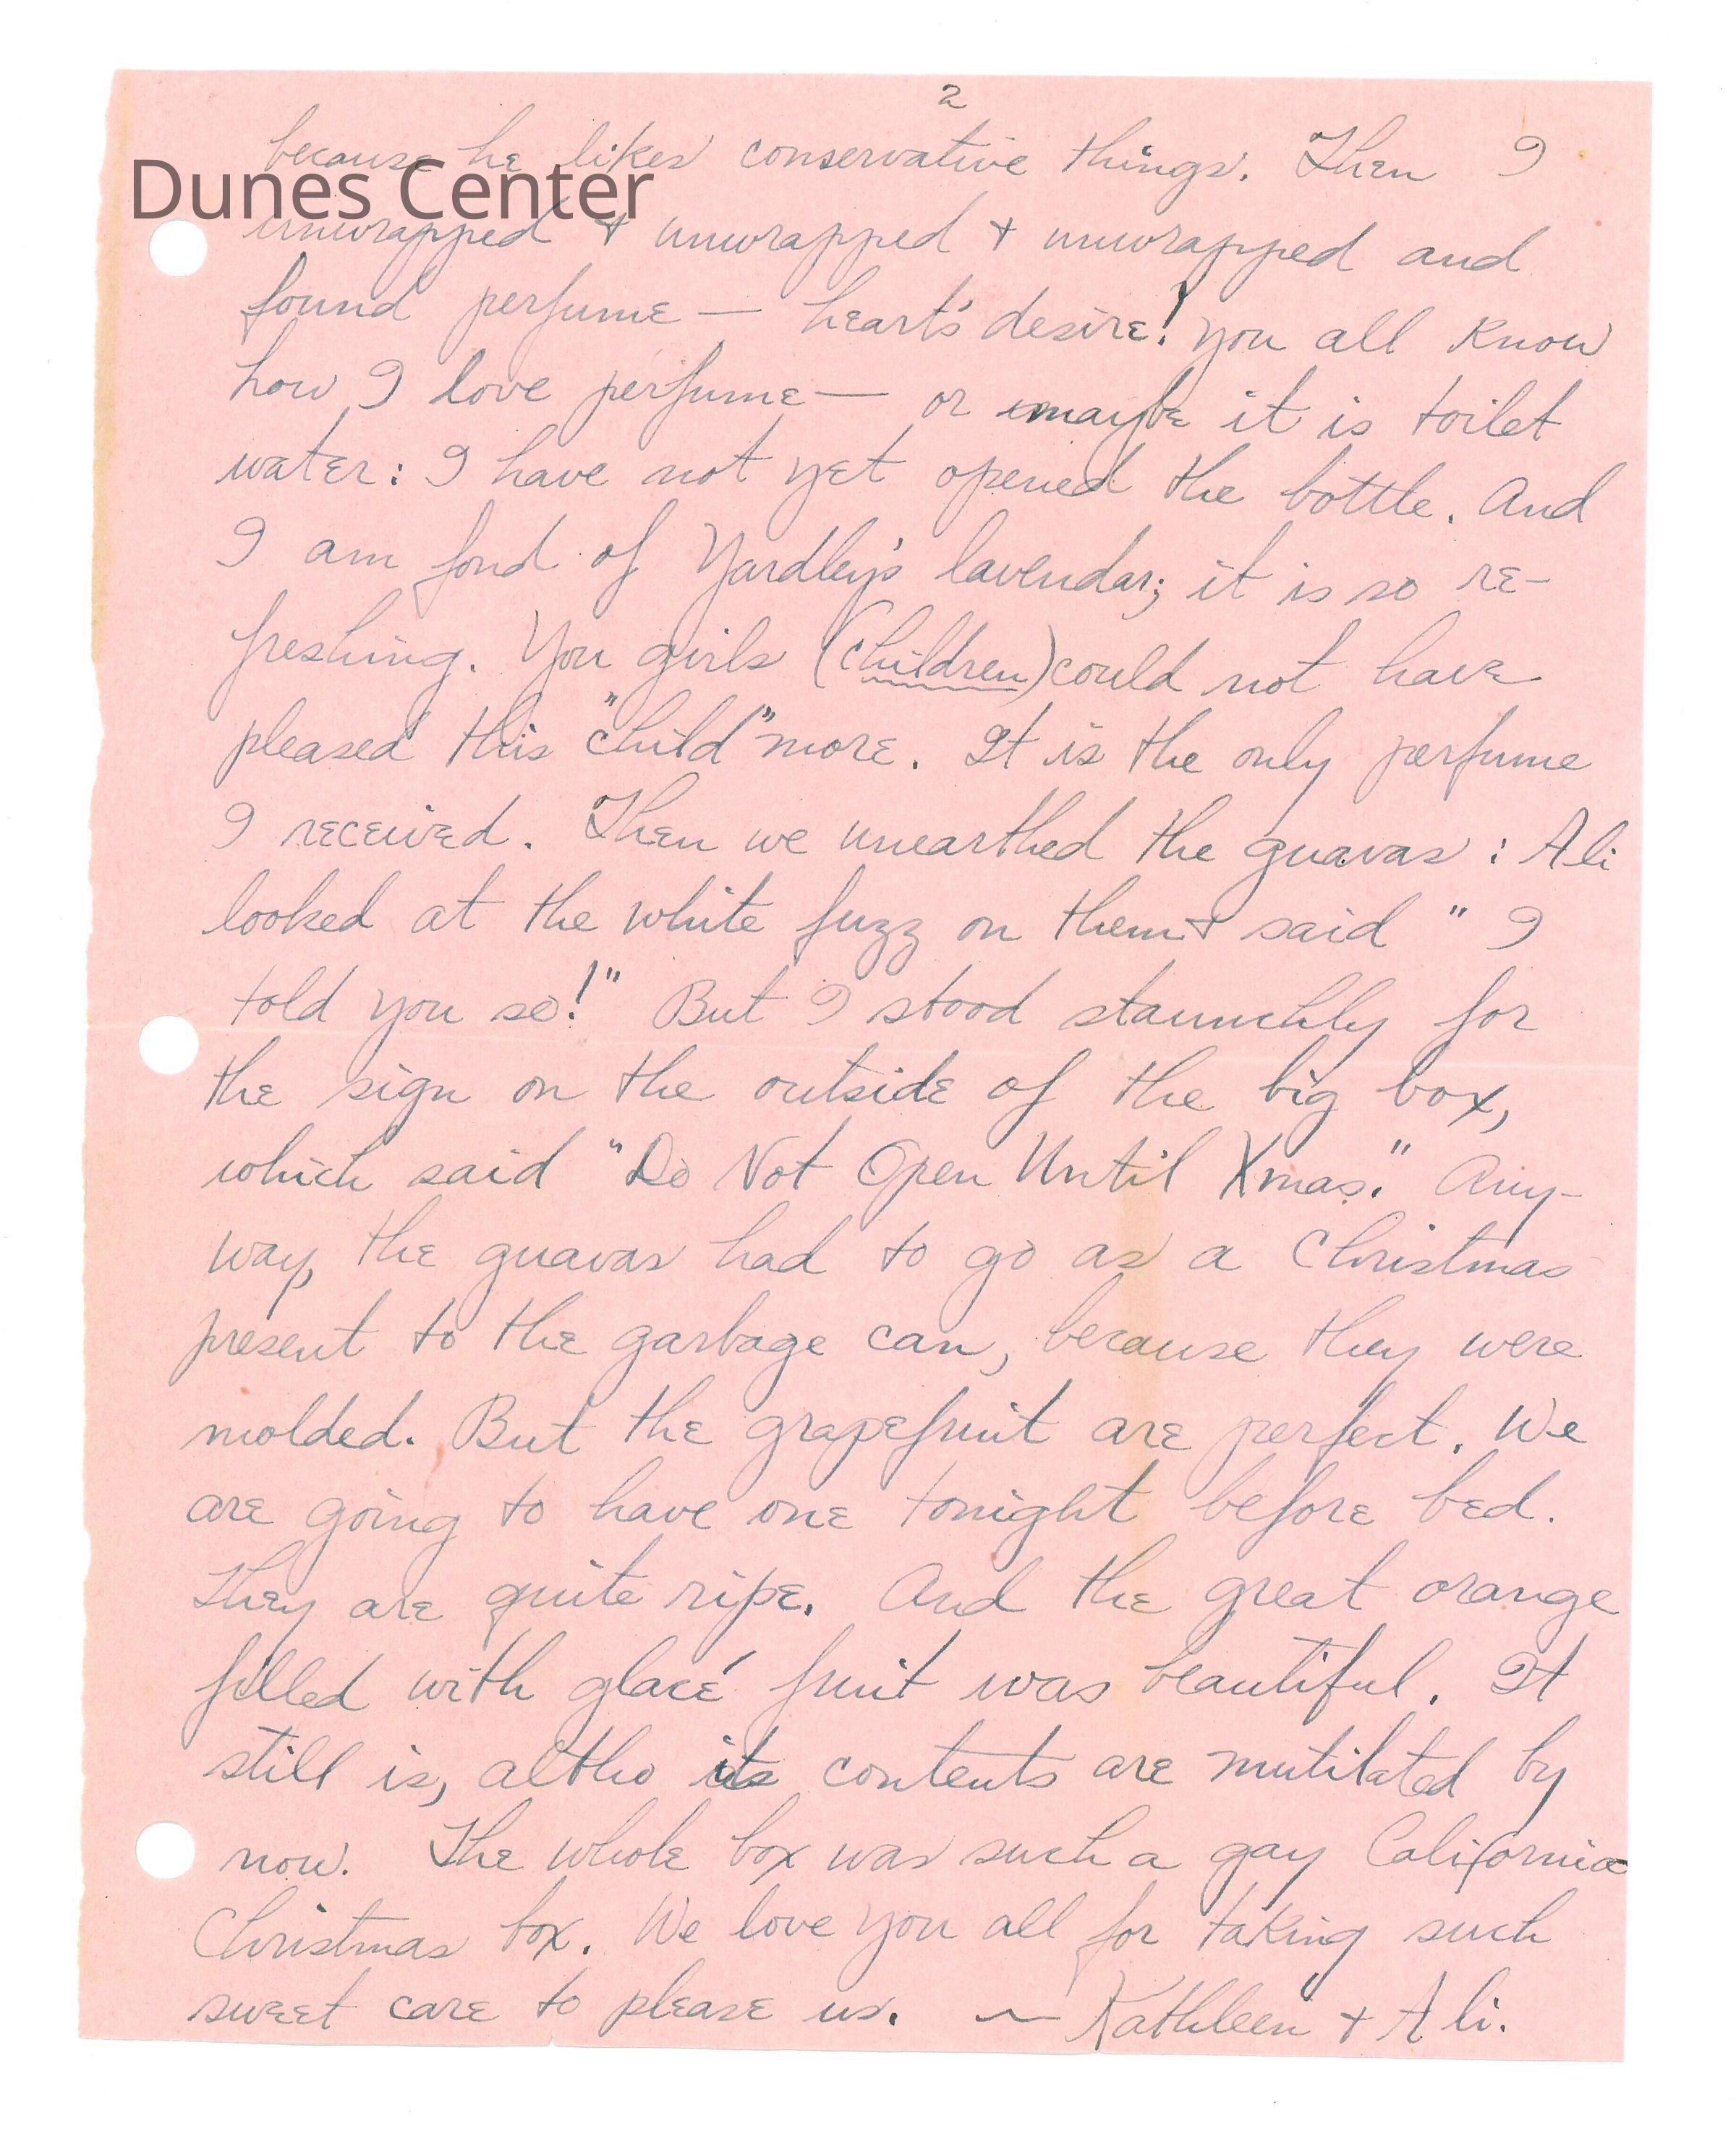 2
because he likes conservative things. Then I
Dunes Center
unwrapped + unwrapped + unwrapped and
found perfume — heart's desire! You all know
how I love perfume — or maybe it is toilet
water: I have not yet opened the bottle. And
I am fond of Yardley's lavendar; it is so re-
freshing. You girls (children) could not have
pleased this "child" more. It is the only perfume
I received. Then we unearthed the guavas: Ali
looked at the white fuzz on them + said "I
told you so!" But I stood staunchly for
the sign on the outside of the big box,
which said "Do Not Open Until Xmas." Any-
way, the guavas had to go as a Christmas
present to the garbage can, because they were
molded. But the grapefruit are perfect. We
are going to have one tonight before bed.
They are quite ripe. And the great orange
filled with glacé fruit was beautiful. It
still is, altho its contents are mutilated by
now. The whole box was such a gay California
Christmas box. We love you all for taking such
sweet care to please us. ~ Kathleen + Ali.